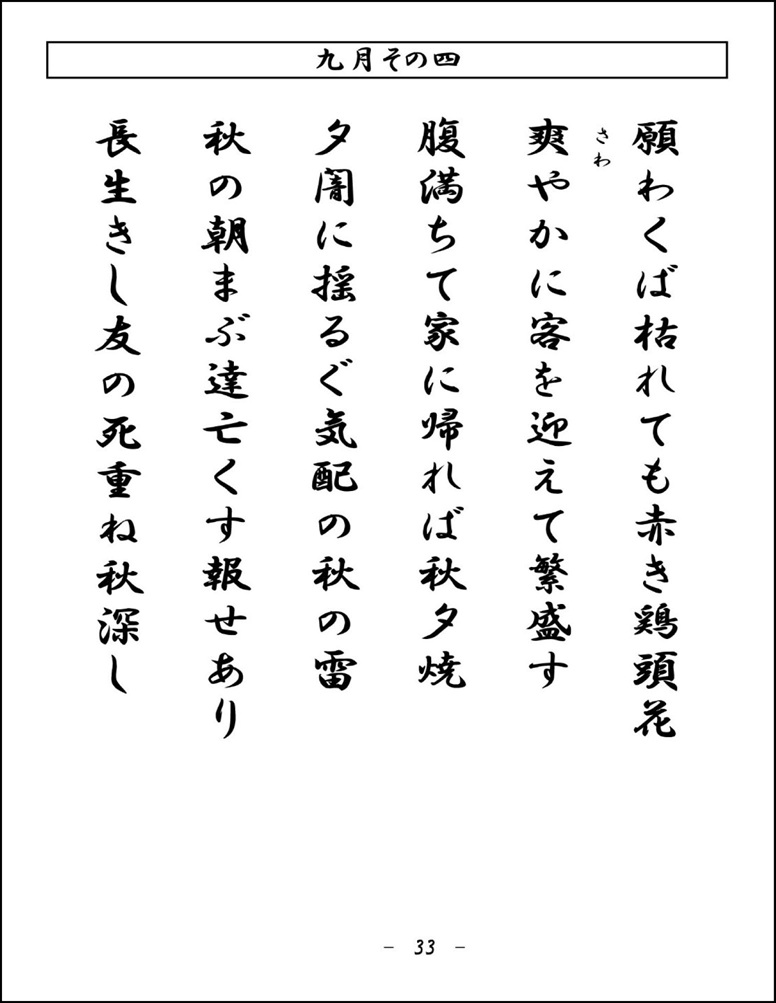 九月その四
願わくば枯れても赤き鶏頭花
さわ
爽やかに客を迎えて繁盛す
腹満ちて家に帰れば秋夕焼
夕闇に揺るぐ気配の秋の雷
秋の朝まぶ達亡くす報せあり
長生きし友の死重ね秋深し
- 33 -